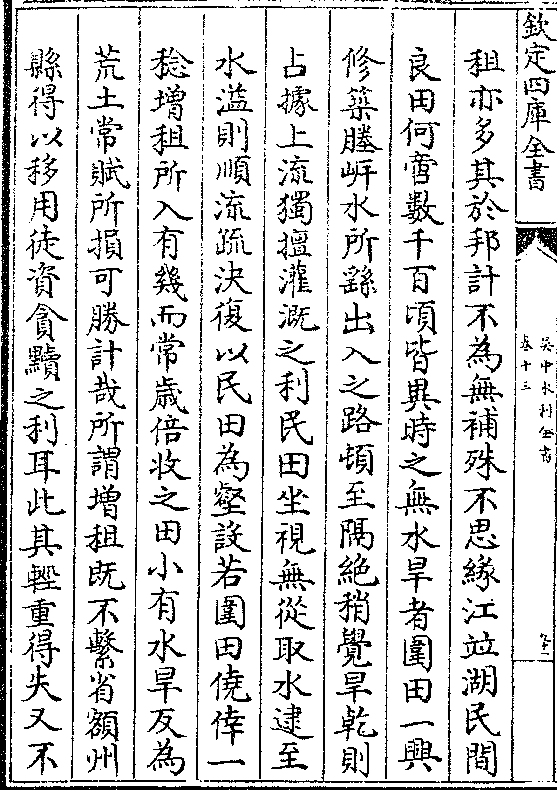 欽定四庫全書
吳中水利全書
卷十三
租亦多其於邦計不為無補殊不思緣江竝湖民間
良田何啻數千百頃皆異時之無水旱者圍田一興
修築塍岸水所繇出入之路頓至隔絶稍覺旱乾則
占據上流獨擅灌溉之利民田坐視無從取水逮至
水溢則順流疏決復以民田為壑設若圍田僥倖一
稔增租所入有幾而常歲倍收之田小有水旱反為
荒土常賦所損可勝計哉所謂増租既不繫省額州
縣得以移用徒資貪黷之利耳此其輕重得失又不